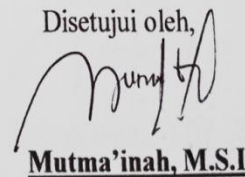 Disetujui oleh,
Mutma'inah, M.S.I